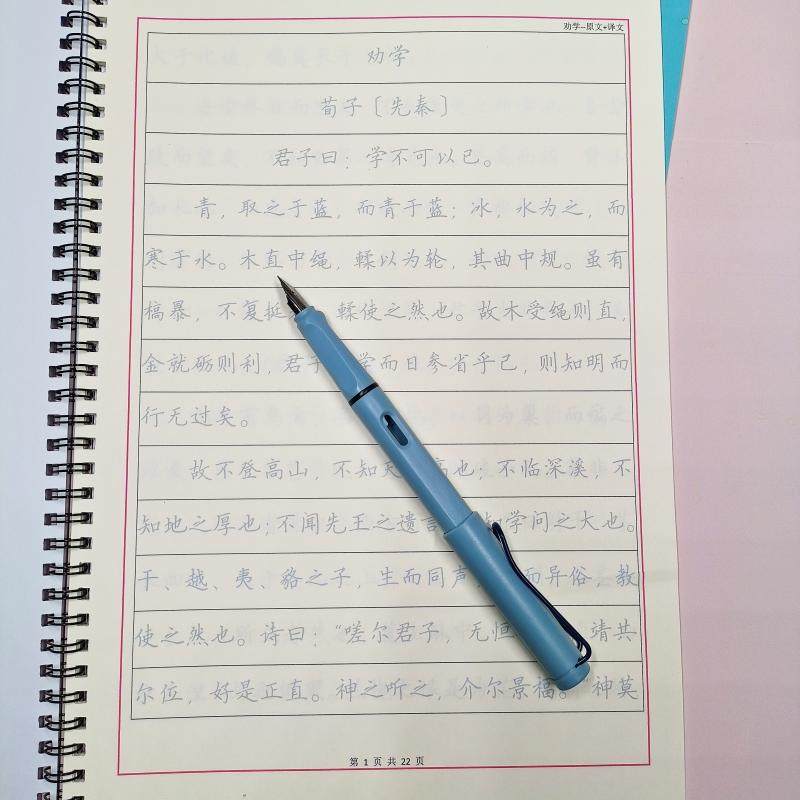 劝学--原文+译文
劝学
荀子〔先秦〕
君子曰：学不可以已。
青，取之于蓝，而青于蓝；冰，水为之，而
寒于水。木直中绳，輮以为轮，其曲中规。虽有
槁暴，不复挺 輮使之然也。故木受绳则直，
金就砺则利，君子 学而日参省乎己，则知明而
行无过矣。
故不登高山，不知天 高也；不临深溪，不
知地之厚也；不闻先王之遗言 知学问之大也。
干、越、夷、貉之子，生而同声 而异俗，教
使之然也。诗曰：“嗟尔君子，无恒 靖共
尔位，好是正直。神之听之，介尔景福。” 神莫
第 1 页 共 22 页